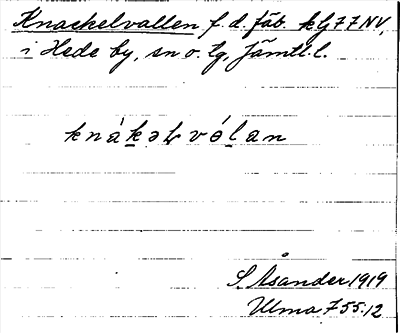 Knackelvallen f. d. fäb. kG77NV,
i Hede by, sn o. tg, Jämtl. l.
knákəl vólan
S. Åsander 1919
Ulma 755:12